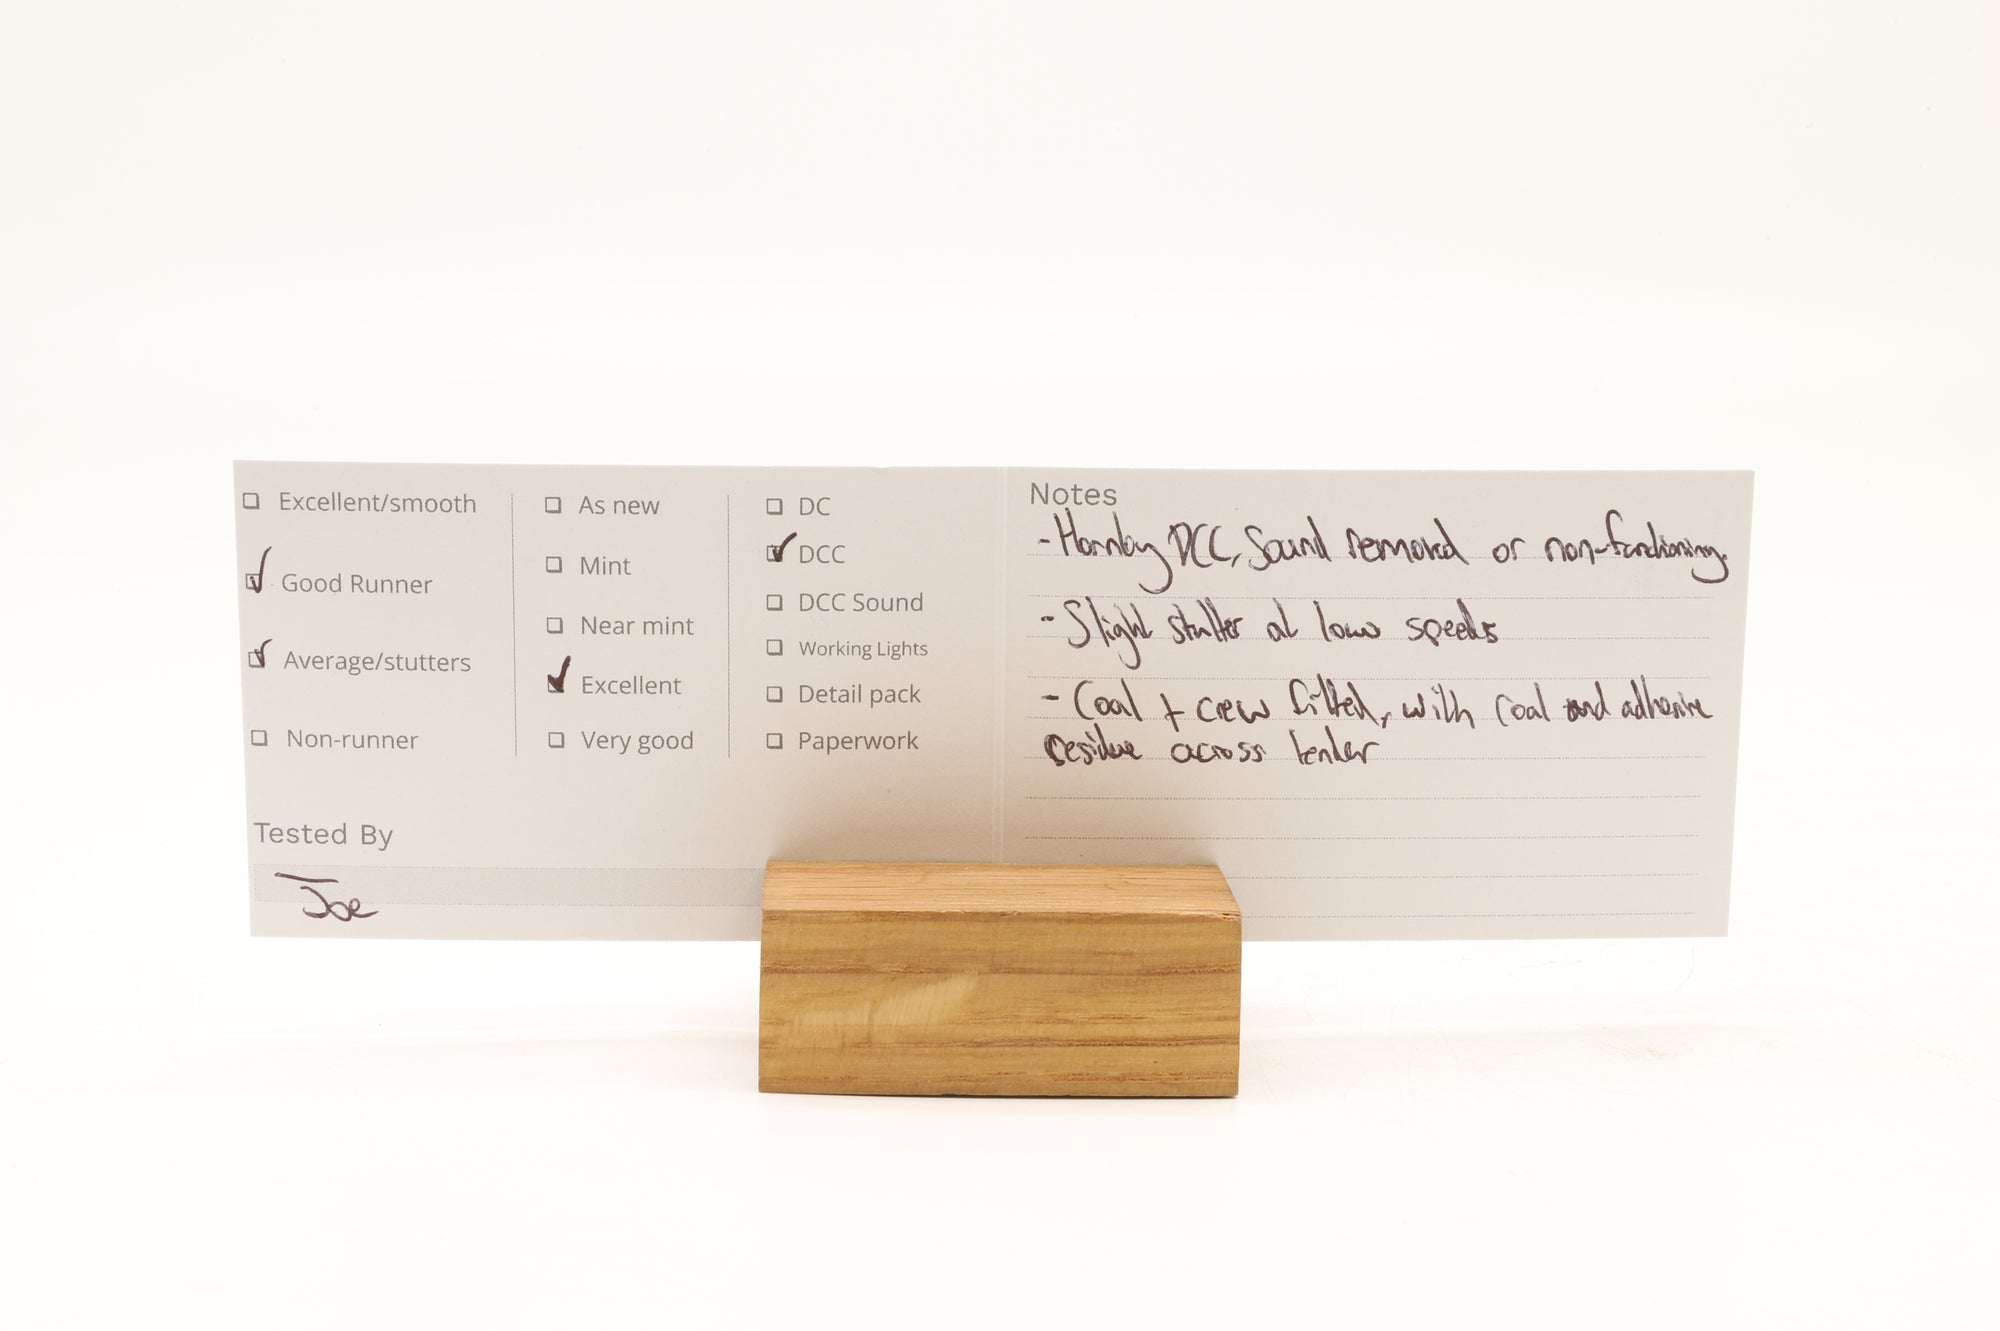 Excellent/smooth
Good Runner
Average/stutters
Non-runner
As new
Mint
Near mint
Excellent
Very good
DC
DCC
DCC Sound
Working Lights
Detail pack
Paperwork
Tested By
Joe
Notes
- Hornby DCC, Sound removed or non-functioning.
- Slight stutter at low speeds
- Coal + crew fitted, with coal and adhesive
residue across tender